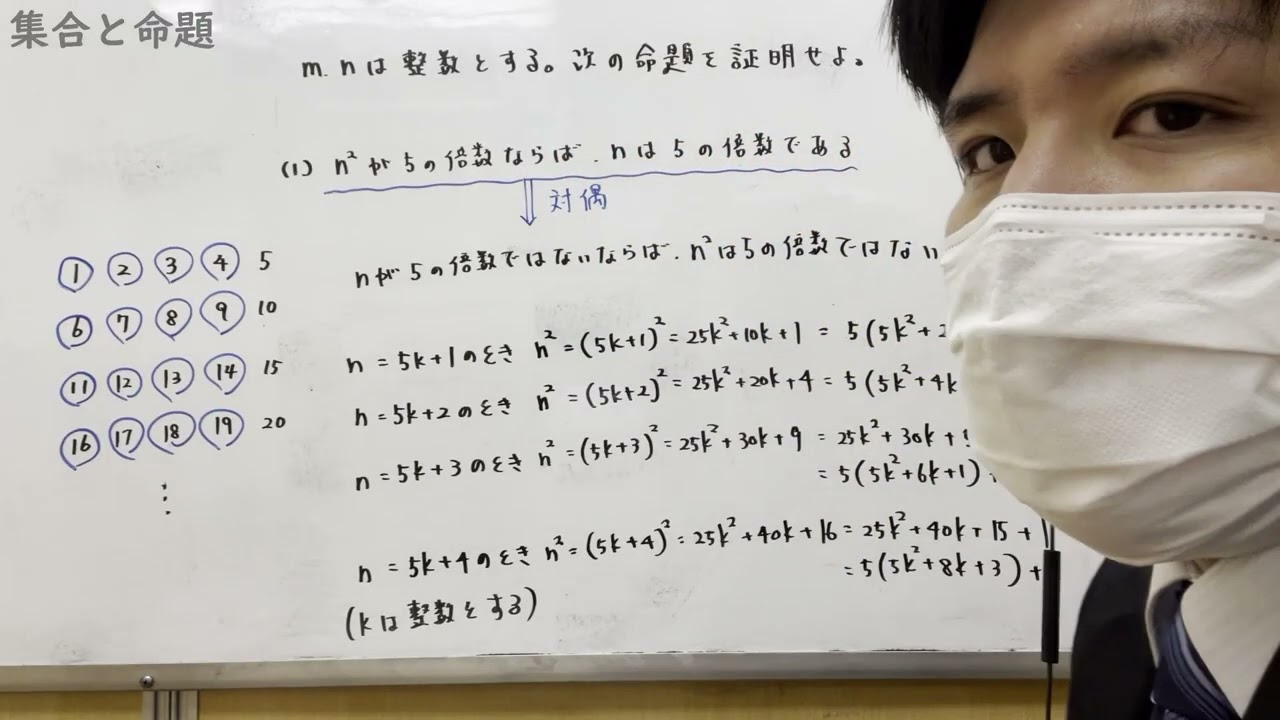 集合と命題
m. nは整数とする。次の命題を証明せよ。
(1) n²が5の倍数ならば、nは5の倍数である
対偶
nが5の倍数ではないならば、n²は5の倍数ではない
① ② ③ ④ 5
⑥ ⑦ ⑧ ⑨ 10
⑪ ⑫ ⑬ ⑭ 15
⑯ ⑰ ⑱ ⑲ 20
⋮
n = 5k+1のとき n² = (5k+1)² = 25k²+10k+1 = 5(5k²+
n = 5k+2のとき n² = (5k+2)² = 25k²+20k+4 = 5(5k²+4k
n = 5k+3のとき n² = (5k+3)² = 25k²+30k+9 = 25k²+30k+
= 5(5k²+6k+1)
n = 5k+4のとき n² = (5k+4)² = 25k²+40k+16 = 25k²+40k+15+
= 5(5k²+8k+3)+
(kは整数とする)